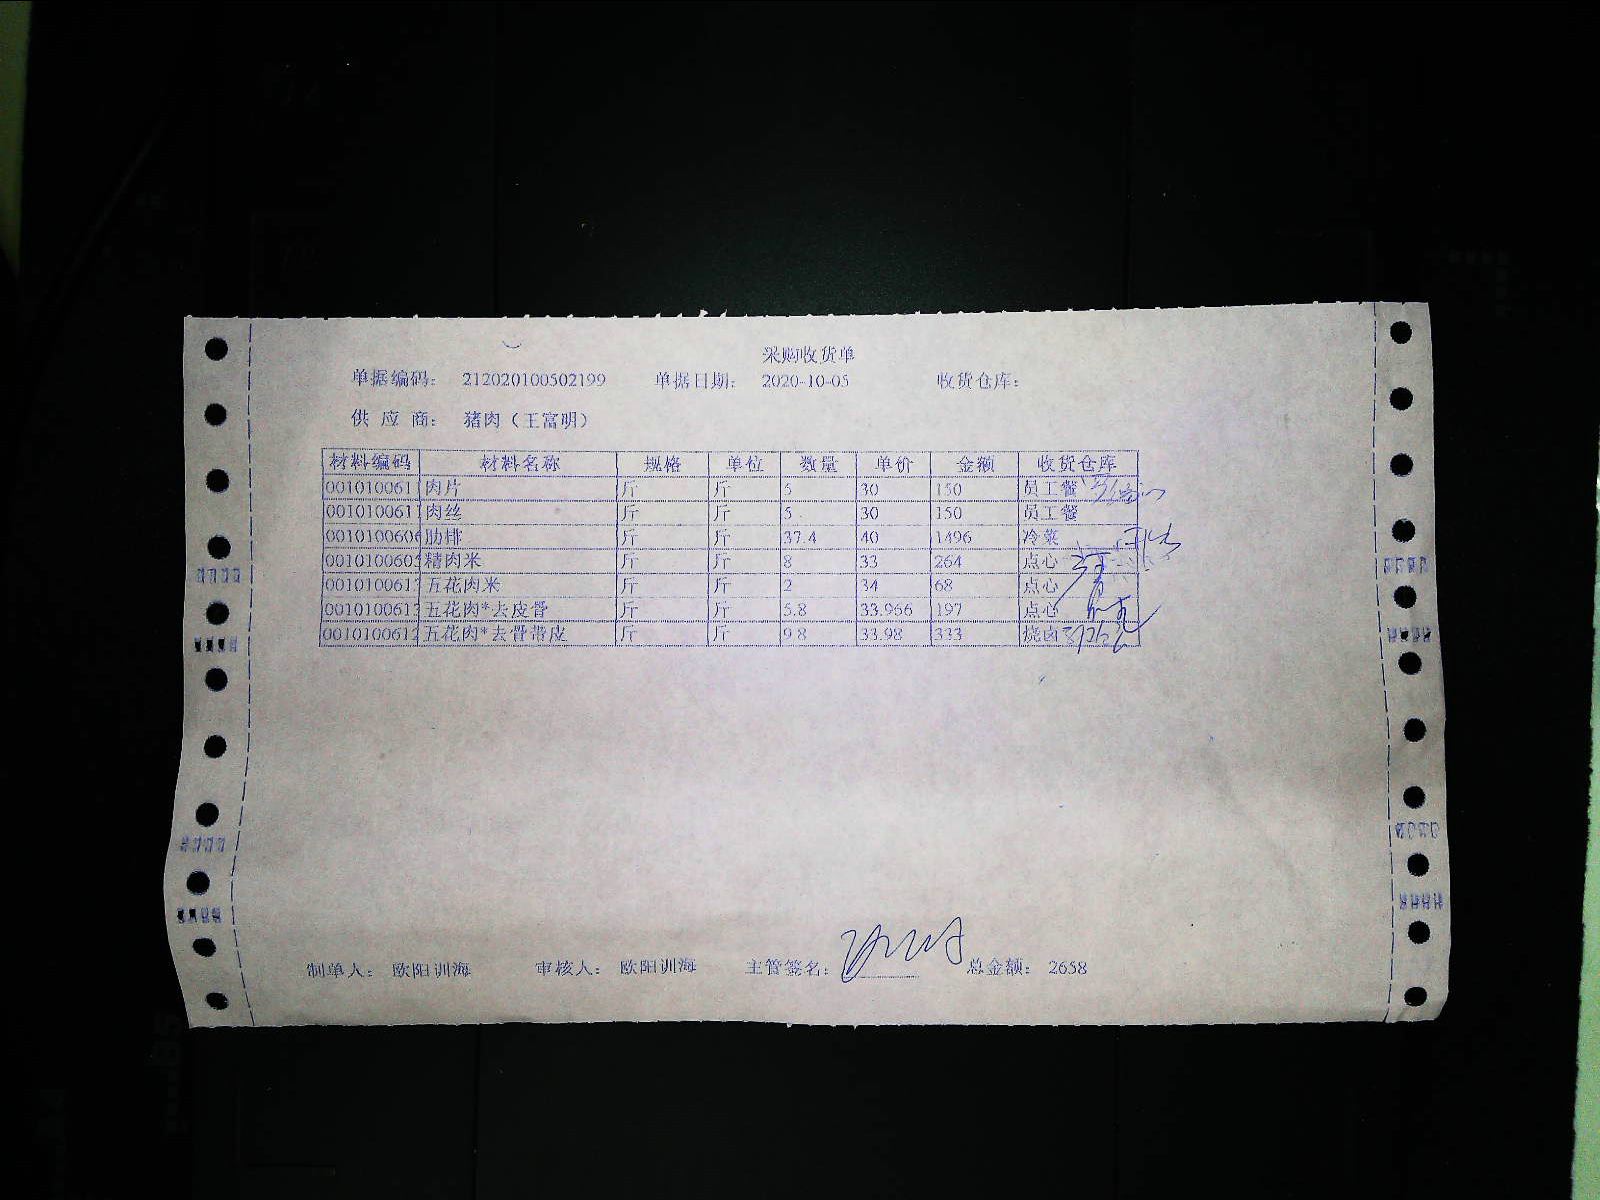 采购收货单
单据编码: 212020100502199 单据日期: 2020-10-05 收货仓库:
供 应 商: 猪肉（王富明）
材料编码 材料名称 规格 单位 数量 单价 金额 收货仓库
0010100611 肉片 斤 斤 5 30 150 员工餐
0010100611 肉丝 斤 斤 5 30 150 员工餐
001010060 肋排 斤 斤 37.4 40 1496 冷菜
001010060 精肉米 斤 斤 8 33 264 点心
001010061 五花肉米 斤 斤 2 34 68 点心
001010061 五花肉*去皮骨 斤 斤 5.8 33.966 197 点心
001010061 五花肉*去骨带皮 斤 斤 9.8 33.98 333 烧卤
制单人: 欧阳训海 审核人: 欧阳训海 主管签名: 总金额: 2658